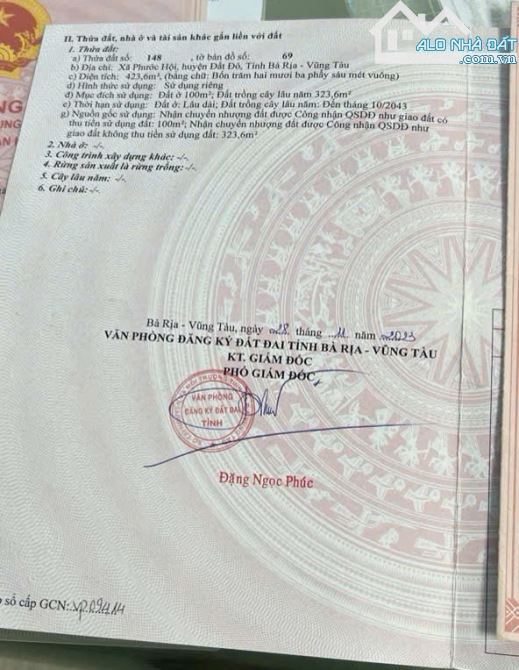 ALO NHÀ ĐẤT
.com.vn
II. Thửa đất, nhà ở và tài sản khác gắn liền với đất
1. Thửa đất:
a) Thửa đất số: 148 , tờ bản đồ số: 69
b) Địa chỉ: Xã Phước Hội, huyện Đất Đỏ, Tỉnh Bà Rịa - Vũng Tàu
c) Diện tích: 423,6m², (bằng chữ: Bốn trăm hai mươi ba phẩy sáu mét vuông)
d) Hình thức sử dụng: Sử dụng riêng
đ) Mục đích sử dụng: Đất ở 100m²; Đất trồng cây lâu năm 323,6m²
e) Thời hạn sử dụng: Đất ở: Lâu dài; Đất trồng cây lâu năm: Đến tháng 10/2043
g) Nguồn gốc sử dụng: Nhận chuyển nhượng đất được Công nhận QSDĐ như giao đất có
thu tiền sử dụng đất: 100m²; Nhận chuyển nhượng đất được Công nhận QSDĐ như
giao đất không thu tiền sử dụng đất: 323,6m²
2. Nhà ở: -/-
3. Công trình xây dựng khác: -/-
4. Rừng sản xuất là rừng trồng: -/-
5. Cây lâu năm: -/-
6. Ghi chú: -/-
Bà Rịa - Vũng Tàu, ngày 28 tháng 11 năm 2023
VĂN PHÒNG ĐĂNG KÝ ĐẤT ĐAI TỈNH BÀ RỊA - VŨNG TÀU
KT. GIÁM ĐỐC
PHÓ GIÁM ĐỐC
VĂN PHÒNG
ĐĂNG KÝ ĐẤT ĐAI
TỈNH
Đặng Ngọc Phúc
số cấp GCN: